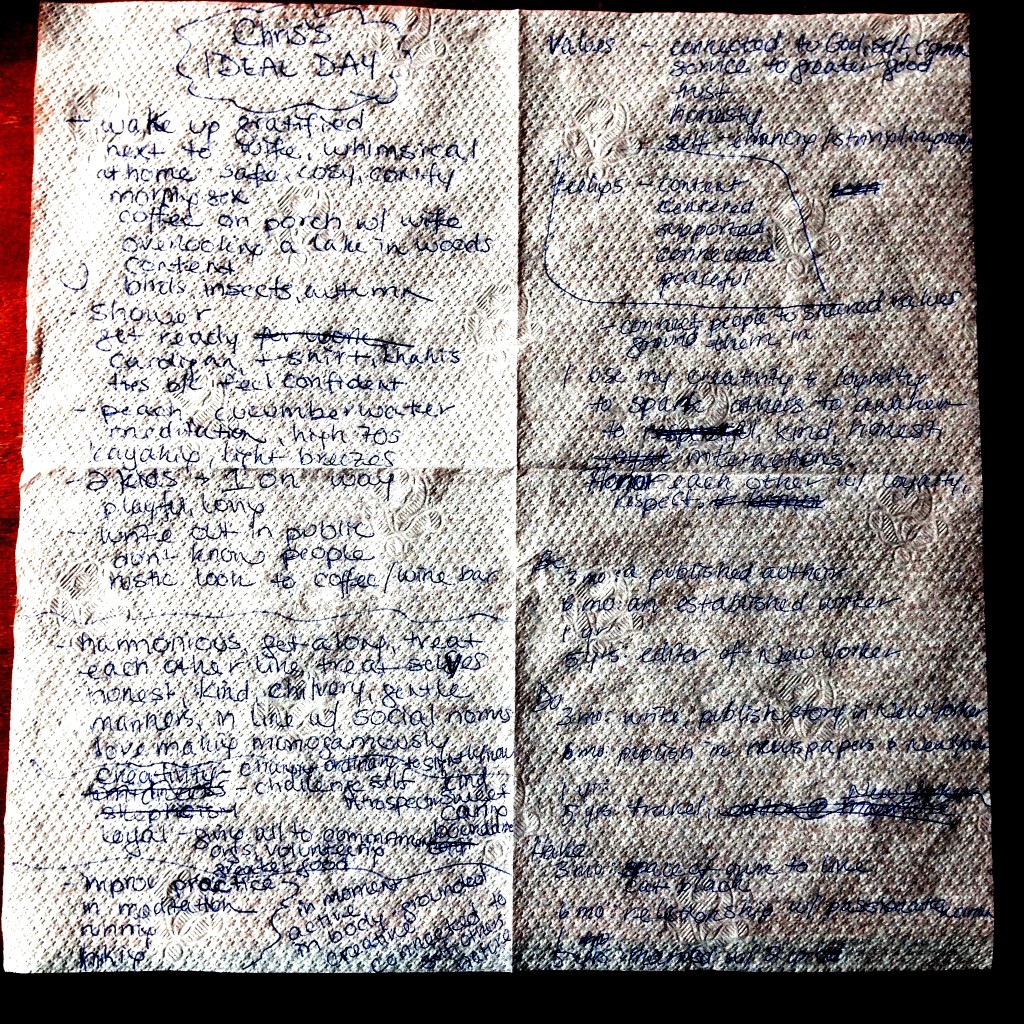 Chris's
IDEAL DAY
- wake up gratified
next to wife, whimsical
at home safe, cozy, comfy
morning sex
coffee on porch w/ wife
overlooking a lake in woods
content
birds, insects, autumn
- shower
get ready for work
cardigan, t-shirt, khakis
ties bk feel confident
- peach, cucumber water
meditation, high 70s
light breezes
- 2 kids + 1 on way
playful, long
- write out in public
don't know people
rustic look to coffee/wine bar
- harmonious, get along, treat
each other like treat selves
honest, kind, chilvery, gentle
manners, in line w/ social norms
love making monogamously
creativity -
challenge self
kind
sweet
caring
loyal - giving all to commitment
volunteering
greater good
- improv practice
in meditation
running
hiking
in moment
active
in body grounded
creative
connected to
nature
Values - connected to God, self, comm
service to greater good
trust
honesty
self -
feelings - content
centered
supported
connected
peaceful
- connect people to shared values
ground them in
I use my creativity & loyalty
to spark others to awaken
to kind, honest
interactions.
Honor each other w/ loyalty,
respect
Be
3 mo: a published author
6 mo: an established worker
1 yr:
5 yrs: editor of New Yorker
Do
3 mo: write, publish story in New Yorker
6 mo: publish in newspapers &
1 yr:
5 yrs: travel,
Have
3 mo: space of own to live
6 mo: relationship w/ passionate
5 yrs: married w/